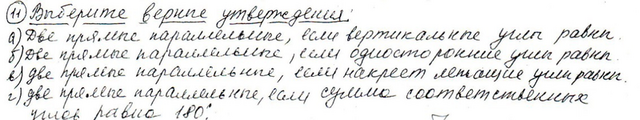 11 Выберите верные утверждения:
а) Две прямые параллельные, если вертикальные углы равны.
б) Две прямые параллельные, если односторонние углы равны.
в) две прямые параллельные, если накрест лежащие углы равны.
г) две прямые параллельные, если сумма соответственных
углов равна 180°.